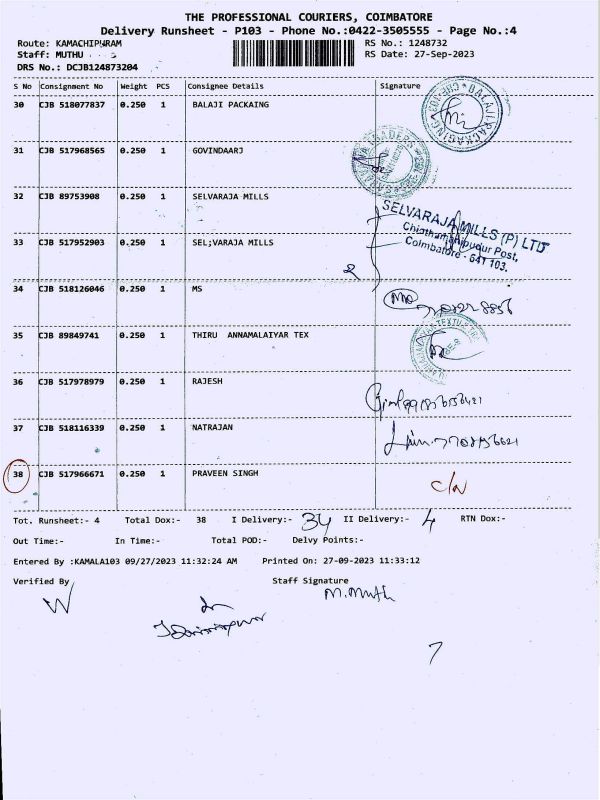 THE PROFESSIONAL COURIERS, COIMBATORE
Delivery Runsheet - P103 - Phone No.:0422-3505555 - Page No.:4
Route: KAMACHIPURAM RS No.: 1248732
Staff: MUTHU RS Date: 27-Sep-2023
DRS No.: DCJB124873204
S No Consignment No Weight PCS Consignee Details Signature
30 CJB 518077837 0.250 1 BALAJI PACKAING
31 CJB 517968565 1 GOVINDAARJ
32 CJB 89753908 0.250 1 SELVARAJA MILLS
SELVARAJA MILLS (P) LTD
Chinthamanipudur Post,
Coimbatore - 641 103.
33 CJB 517952903 0.250 1 SEL;VARAJA MILLS
34 CJB 518126046 0.250 1 MS
35 CJB 89849741 0.250 1 THIRU ANNAMALAIYAR TEX
36 CJB 517978979 0.250 1 RAJESH
37 CJB 518116339 0.250 1 NATRAJAN
38 CJB 517966671 0.250 1 PRAVEEN SINGH
Tot. Runsheet:- 4 Total Dox:- 38 I Delivery:- 34 II Delivery:- 4 RTN Dox:-
Out Time:- In Time:- Total POD:- Delvy Points:-
Entered By :KAMALA103 09/27/2023 11:32:24 AM Printed On: 27-09-2023 11:33:12
Verified By Staff Signature
M.Muth